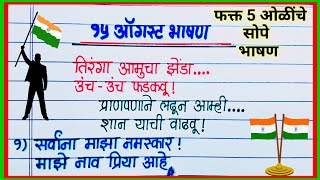 १५ ऑगस्ट भाषण
फक्त 5 ओळींचे
सोपे
भाषण
तिरंगा आमुचा झेंडा....
उंच-उंच फडकवू!
प्राणपणाने लढून आम्ही....
शान याची वाढवू!
१) सर्वांना माझा नमस्कार!
माझे नाव प्रिया आहे.